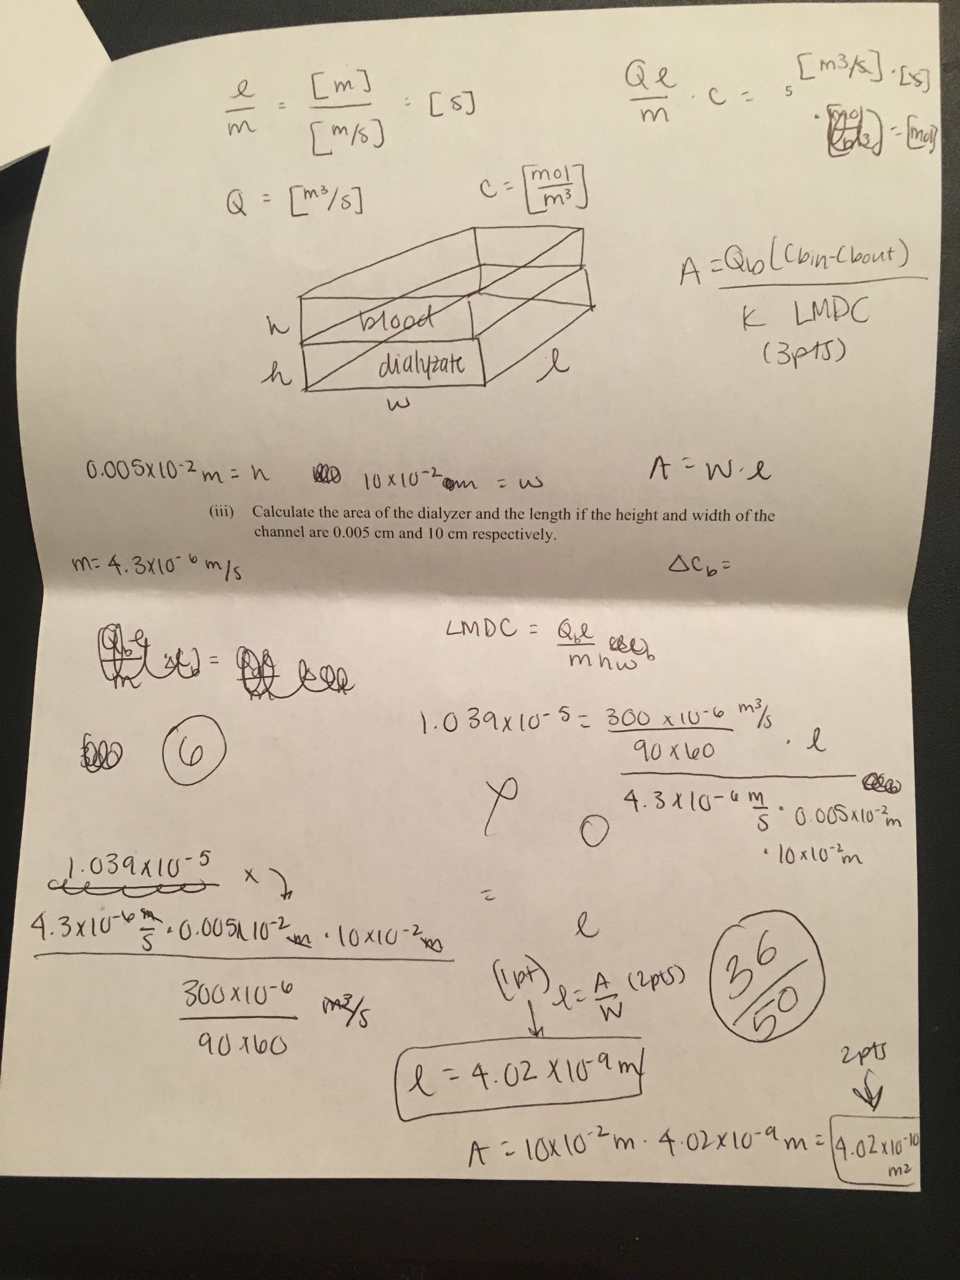 l/m = [m]/[m/s] = [s]
Ql/m · C = [m3/s] · [s]
= [mol]
Q = [m³/s]
C = [mol/m³]
A = Qb(Cbin-Cbout)/K LMDC
(3pts)
h
blood
h
dialyzate
l
w
0.005x10-2 m = h
10x10-2 m = w
A = w·l
(iii) Calculate the area of the dialyzer and the length if the height and width of the
channel are 0.005 cm and 10 cm respectively.
m= 4.3x10-6 m/s
ΔCb=
LMDC = Qbl/mhw
6
1.039x10-5 = 300 x10-6 m³/s / 90x60 · l
4.3x10-6 m/s · 0.005x10-2 m
· 10x10-2 m
0
1.039x10-5 x
4.3x10-6 m/s · 0.005x10-2 m · 10x10-2 m
300x10-6 m³/s
90x60
=
l
(1pt)
l = A/W (2pts)
36/50
l = 4.02x10-9 m
2pts
A = 10x10-2 m · 4.02x10-9 m = 4.02x10-10 m2